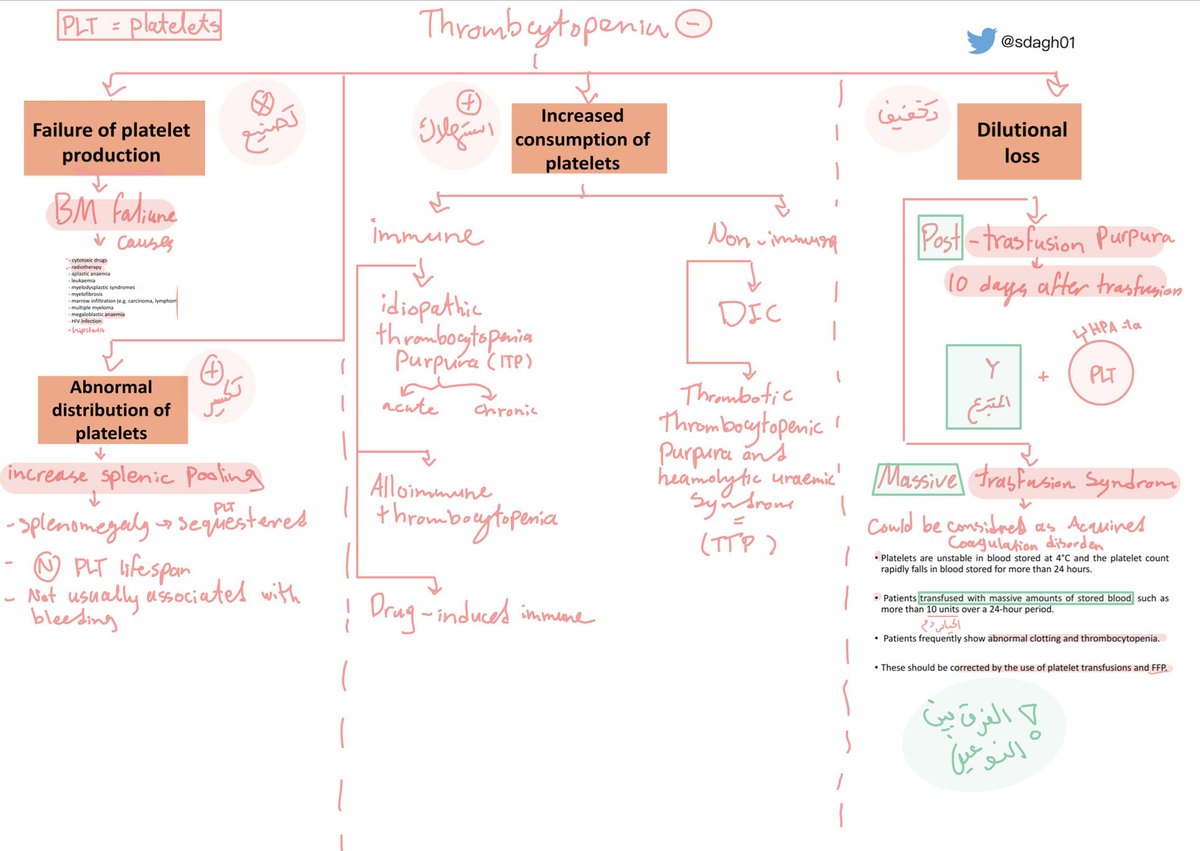 PLT = platelets
Thrombcytopenia -
@sdagh01
Failure of platelet
production
تصنيع
BM failure
causes
- cytotoxic drugs
- radiotherapy
- aplastic anaemia
- leukaemia
- myelodysplastic syndromes
- myelofibrosis
- marrow infiltration (e.g. carcinoma, lymphom
- multiple myeloma
- megaloblastic anaemia
- HIV infection
Abnormal
distribution of
platelets
+
تكسير
increase splenic Pooling
PLT
- splenomegaly → sequesterred
- N PLT lifespan
- Not usually associated with
bleeding
Increased
consumption of
platelets
+
استهلاك
immune
idiopathic
thrombocytopenia
Purpura (ITP)
acute
chronic
Alloimmune
thrombocytopenia
Drug-induced immune
Non-immune
DIC
Thrombotic
Thrombocytopenic
Purpura and
heamolytic uraemic
Syndrome
=
(TTP)
Dilutional
loss
تخفيف
Post-trasfusion Purpura
10 days after trasfusion
Y
المتبرع
+
HPA-1a
PLT
Massive trasfusion Syndrom
Could be considered as Acquired
Coagulation disorder
• Platelets are unstable in blood stored at 4°C and the platelet count
rapidly falls in blood stored for more than 24 hours.
• Patients transfused with massive amounts of stored blood, such as
more than 10 units over a 24-hour period.
• Patients frequently show abnormal clotting and thrombocytopenia.
• These should be corrected by the use of platelet transfusions and FFP.
الفرق بين
النوعين